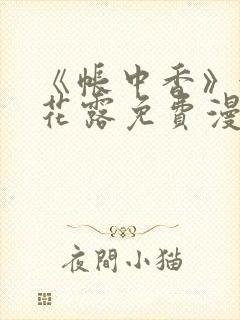 《帐中香》
花露免費漫
夜間小猫